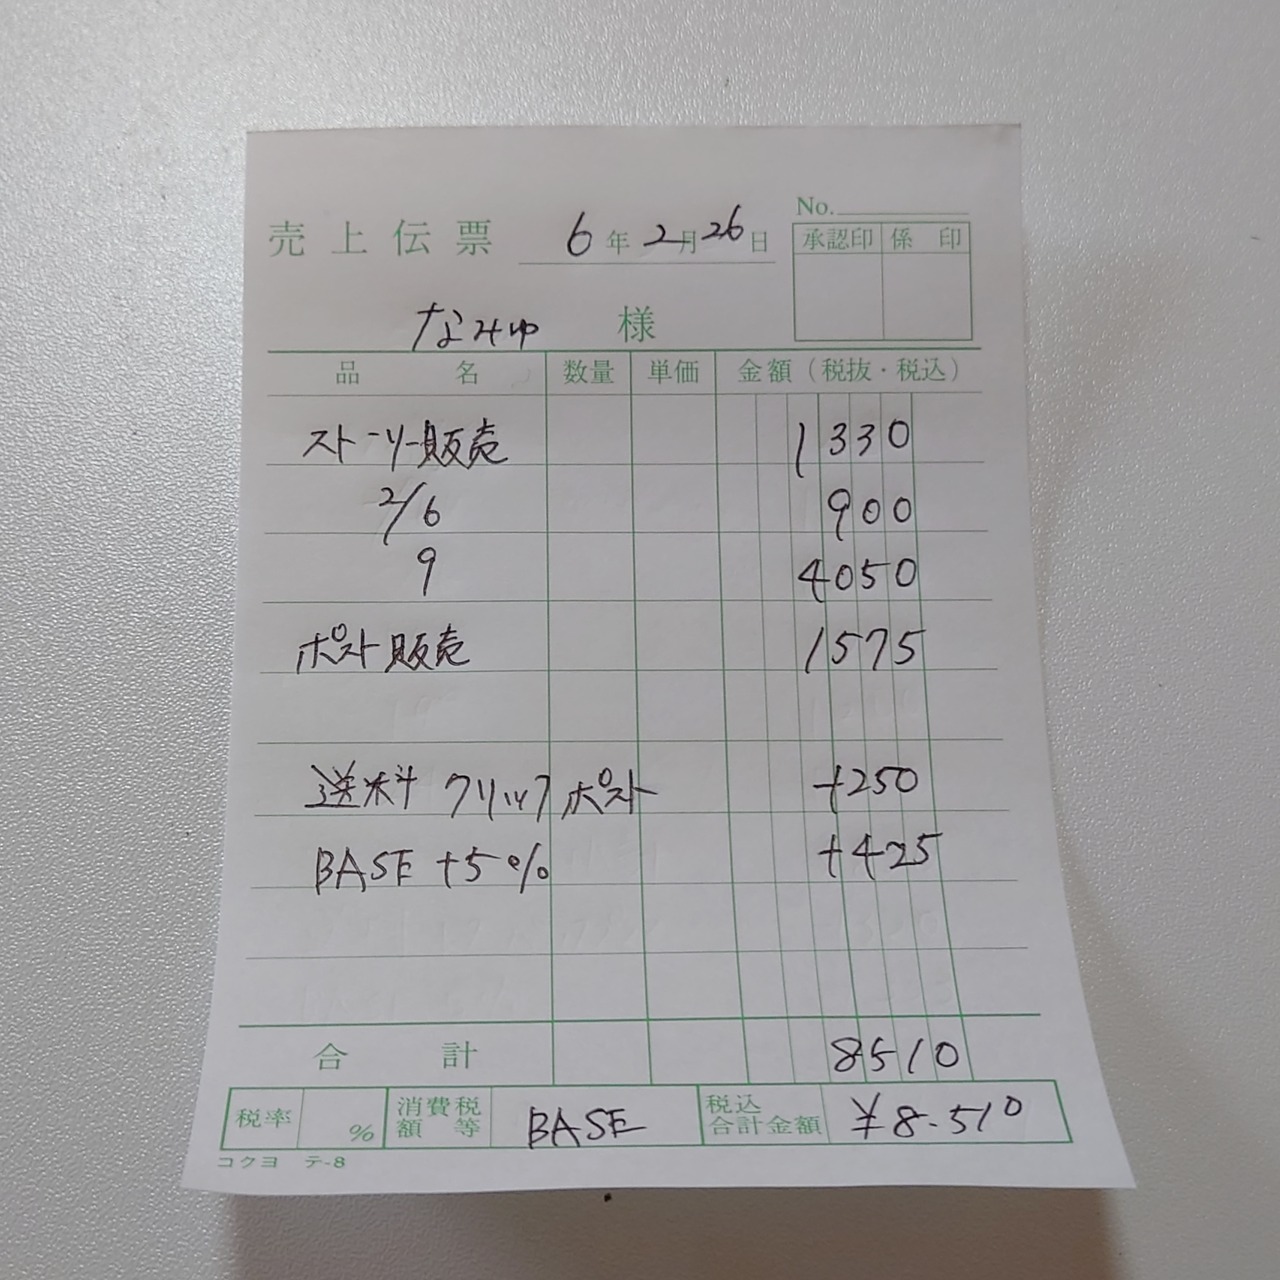 No.
売上伝票 6年2月26日
承認印 係印
なみゆ 様
品名 数量 単価 金額(税抜・税込)
ストーリー販売 1330
2/6 900
9 4050
ポスト販売 1575
送料 クリックポスト +250
BASE +5% +425
合計 8510
税率 % 消費税額等 BASE 税込合計金額 ¥8.510
コクヨ テ-8